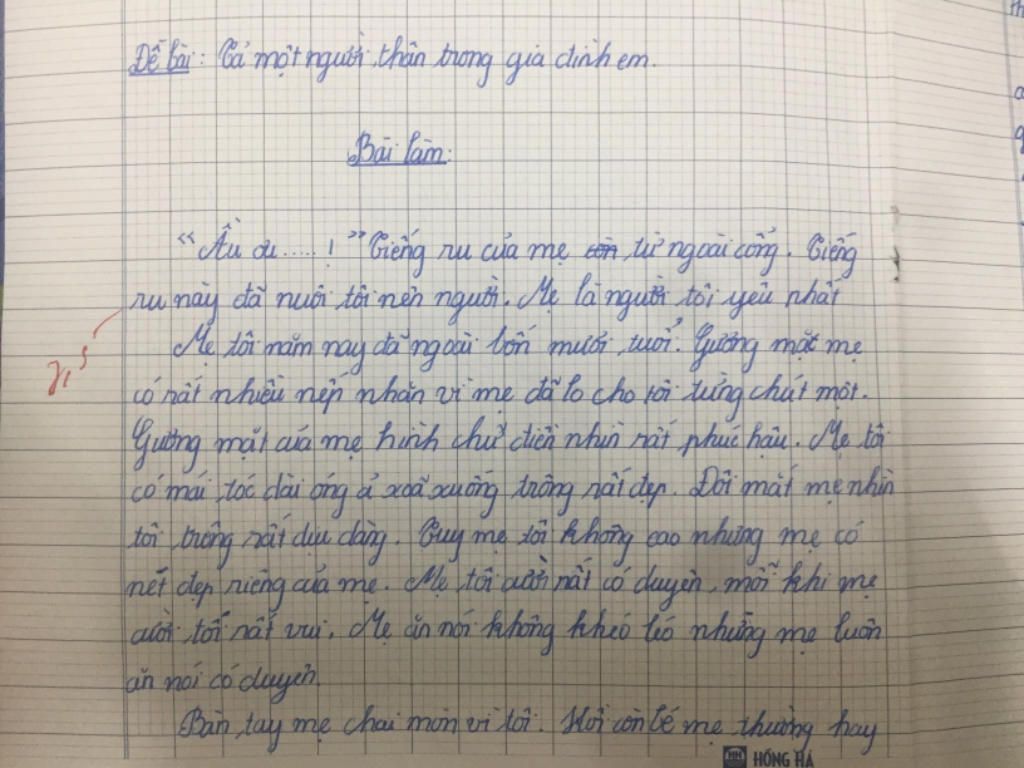 Đề bài: Tả một người thân trong gia đình em.
Bài làm:
"Ầu ơ.....!" Tiếng ru của mẹ từ ngoài cổng. Tiếng
ru này đã nuôi tôi nên người. Mẹ là người tôi yêu nhất
Mẹ tôi năm nay đã ngoài bốn mươi tuổi. Gương mặt mẹ
có rất nhiều nếp nhăn vì mẹ đã lo cho tôi từng chút một.
Gương mặt của mẹ hình chữ điền nhìn rất phúc hậu. Mẹ tôi
có mái tóc dài óng ả xoã xuống trông rất đẹp. Đôi mắt mẹ nhìn
tôi trông rất dịu dàng. Tuy mẹ tôi không cao nhưng mẹ có
nét đẹp riêng của mẹ. Mẹ tôi cười rất có duyên, mỗi khi mẹ
cười tôi rất vui. Mẹ ăn nói không khéo léo nhưng mẹ luôn
ăn nói có duyên.
Bàn tay mẹ chai mòn vì tôi. Hồi còn bé mẹ thường hay
HỒNG HÀ